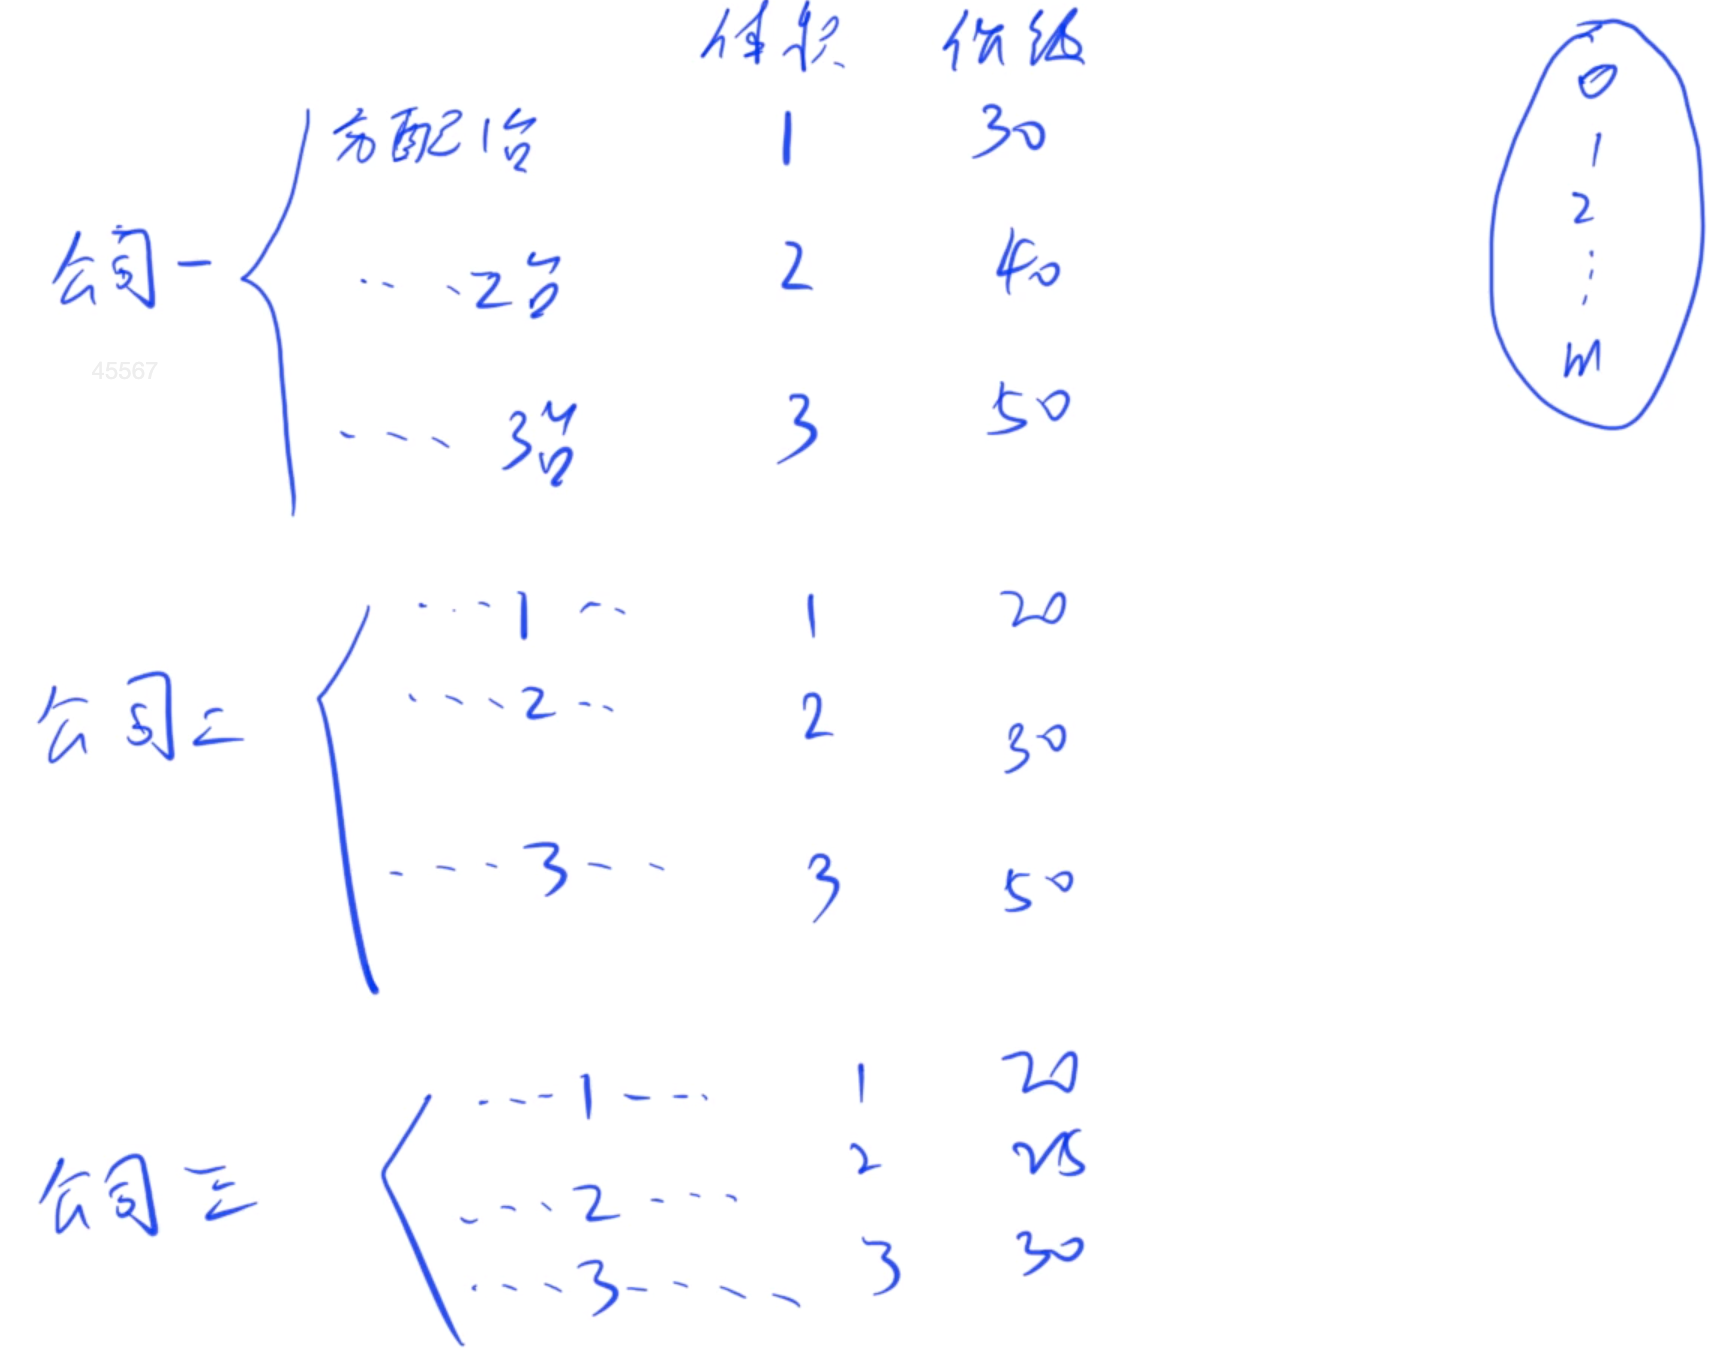 体积 价值
分配1台 1 30
公司一 ...2台 2 40
...3台 3 50
0
1
2
⋮
m
45567
...1... 1 20
公司二 ...2... 2 30
...3... 3 50
...1... 1 20
公司三 ...2... 2 25
...3... 3 30